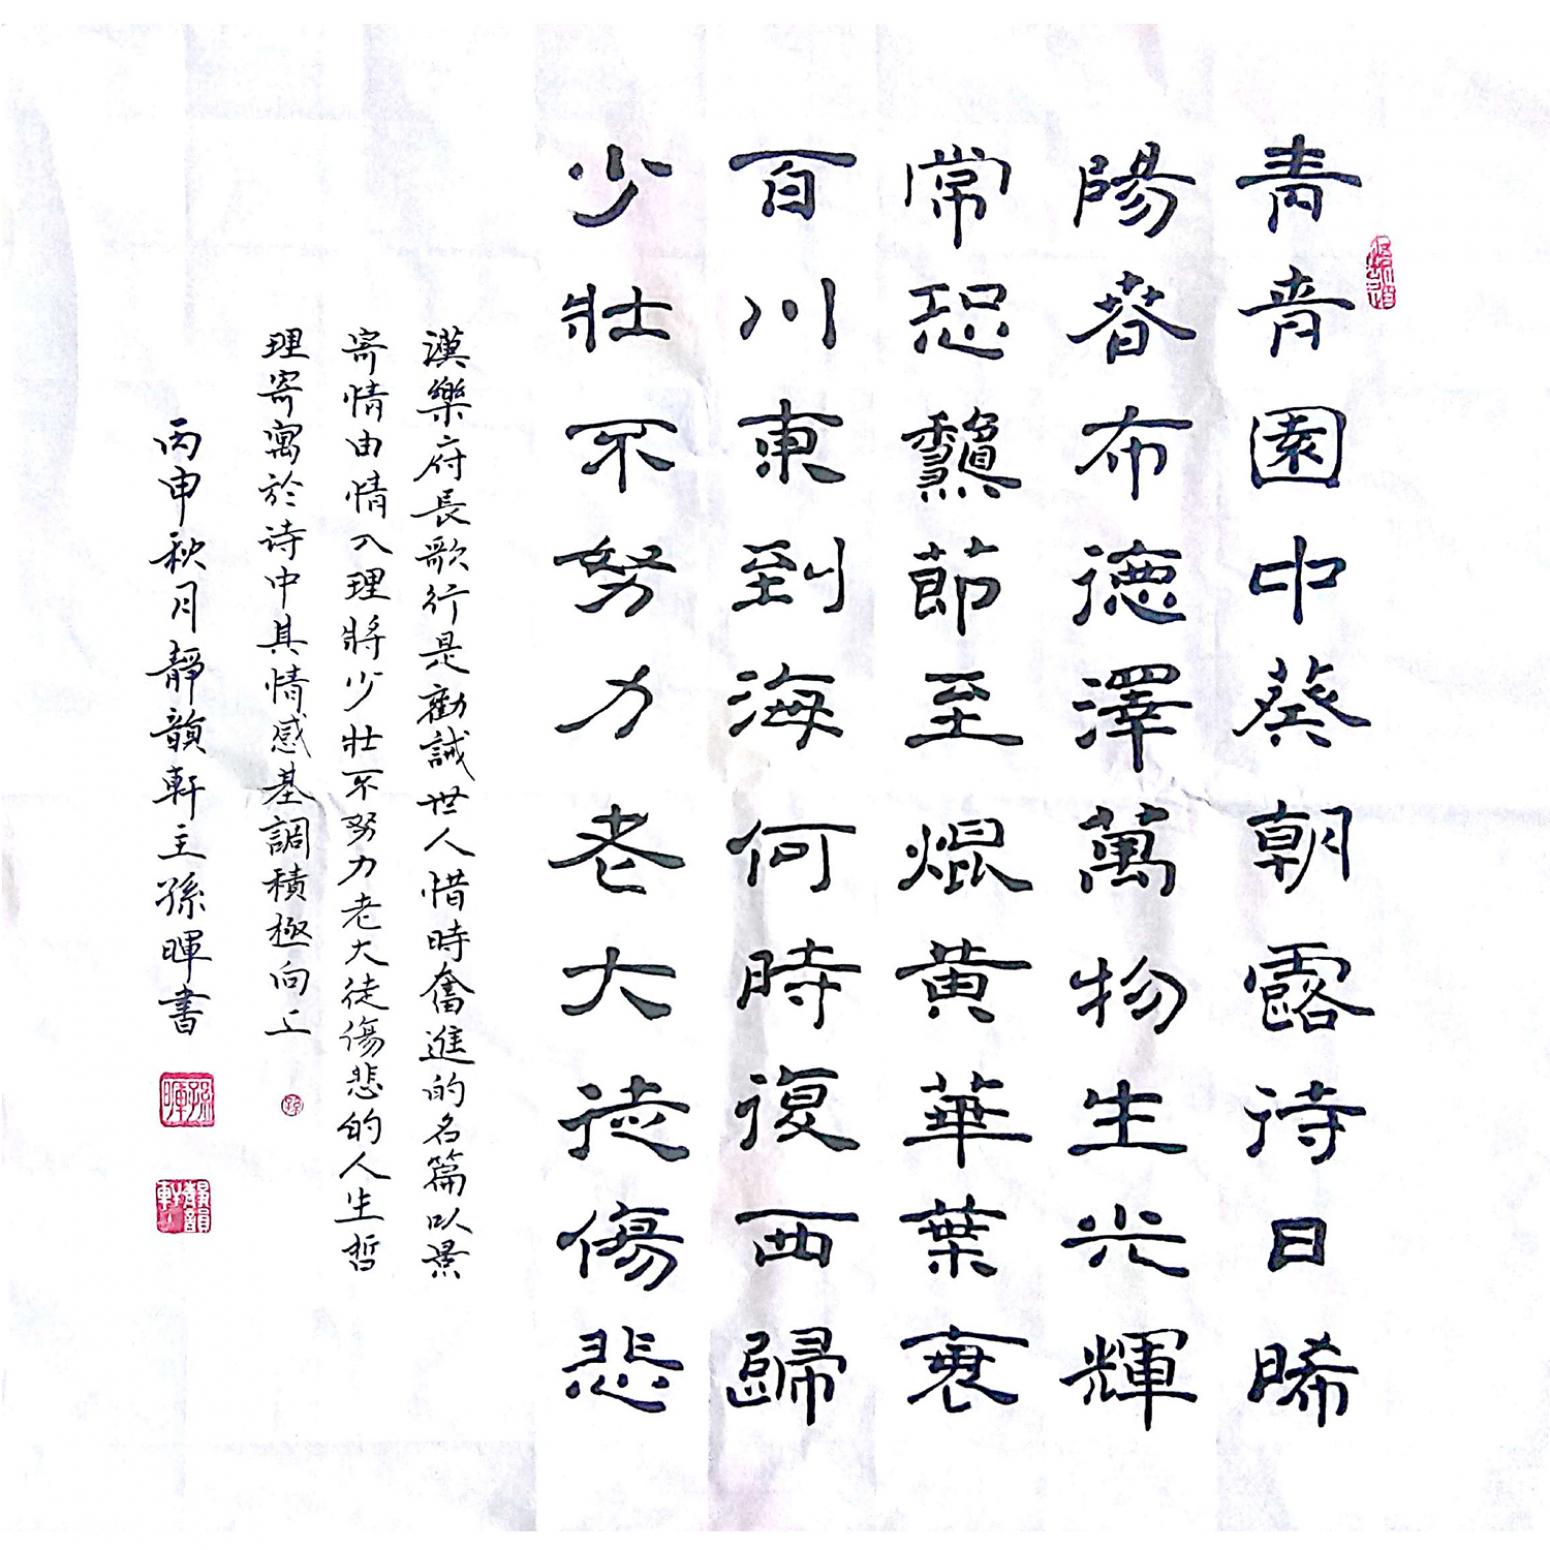 青青園中葵朝露待日晞
陽春布德澤萬物生光輝
常恐龝節至焜黄華葉衰
百川東到海何時復西歸
少壯不努力老大徒傷悲
漢樂府長歌行是勸誡世人惜時奮進的名篇以景
寄情由情入理將少壯不努力老大徒傷悲的人生哲
理寄寓於诗中其情感基調積極向上
丙申秋月靜韻軒主孫暉書
孫暉